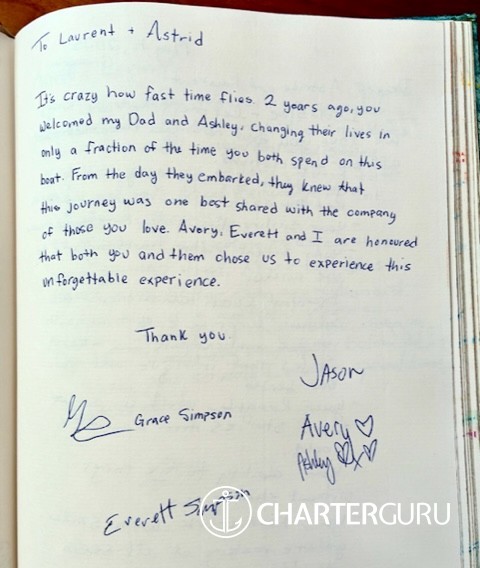 To Laurent + Astrid
It's crazy how fast time flies. 2 years ago, you
welcomed my Dad and Ashley, changing their lives in
only a fraction of the time you both spend on this
boat. From the day they embarked, they knew that
this journey was one best shared with the company
of those you love. Avery, Everett and I are honoured
that both you and them chose us to experience this
unforgettable experience.
Thank you.
Jason
Grace Simpson
Avery
Ashley
Everett Simpson
CHARTERGURU